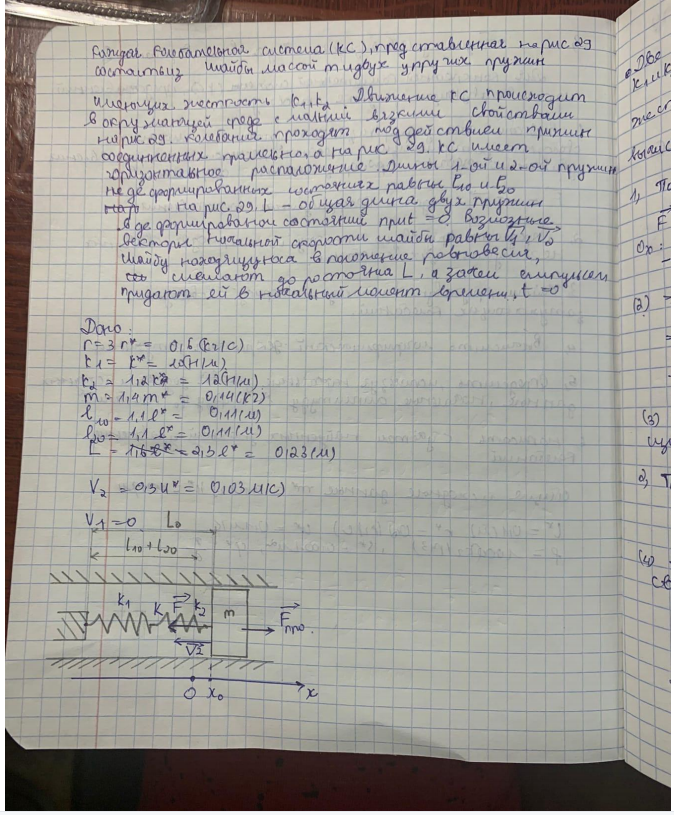 Каждая колебательная система (КС), представленная на рис 29
состоит из шайбы массой m и двух упругих пружин
имеющих жесткость k1, k2. Движение КС происходит
в окружающей среде с малый вязкими свойствами
на рис. 29. колебания проходят под действием пружин
соединенных , а на рис. 29. КС имеет
горизонтальное расположение. Длины 1-ой и 2-ой пружин
недеформированных состояниях равны l10 и l20
на рис. 29. L – общая длина двух пружин
в деформированом состояний при t = 0. Возможные
векторы начальной скорости шайбы равны V1, V2
шайбу находящуюся в положение равновесия,
смещают до L, а затем импульсом
придают ей в начальный момент времени, t = 0
Дано:
r = 3 r* = 0,6 (кг/с)
k1 = k* = 10 (Н/м)
k2 = 1,2k* = 12 (Н/м)
m = 1,4 m* = 0,14 (кг)
l10 = 1,1 l* = 0,11 (м)
l20 = 1,1 l* = 0,11 (м)
L = 2,3 l* = 0,23 (м)
V2 = 0,3 u* = 0,03 м/с)
V1 = 0 L0
l10 + l20
k1 K F k2 m
Fпр0.
V2
0 x0 x
Две
1,
F
Ox:
(2)
(3)
2,